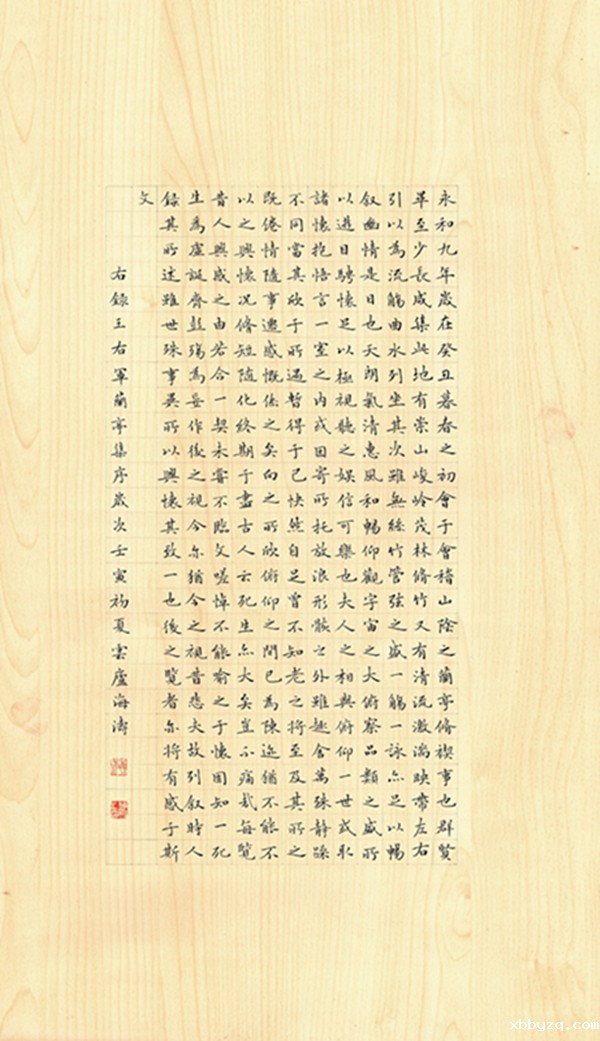 永和九年歲在癸丑暮春之初會于會稽山陰之蘭亭脩禊事也群賢
畢至少長咸集此地有崇山峻岭茂林脩竹又有清流激湍映帶左右
引以為流觴曲水列坐其次雖無絲竹管弦之盛一觴一詠亦足以暢
叙幽情是日也天朗氣清惠風和暢仰觀宇宙之大俯察品類之盛所
以遊目騁懷足以極視聽之娛信可樂也夫人之相與俯仰一世或取
諸懷抱悟言一室之内或因寄所托放浪形骸之外雖趣舍萬殊靜躁
不同當其欣于所遇暫得于己快然自足曾不知老之將至及其所之
既倦情隨事遷感慨係之矣向之所欣俯仰之間已為陳迹猶不能不
以之興懷況脩短隨化終期于盡古人云死生亦大矣豈不痛哉每覽
昔人興感之由若合一契未嘗不臨文嗟悼不能喻之于懷固知一死
生為虛誕齊彭殤為妄作後之視今亦猶今之視昔悲夫故列叙時人
錄其所述雖世殊事異所以興懷其致一也後之覽者亦將有感于斯
文
右錄王右軍蘭亭集序歲次壬寅初夏雲廬海濤
xbbyzq.com